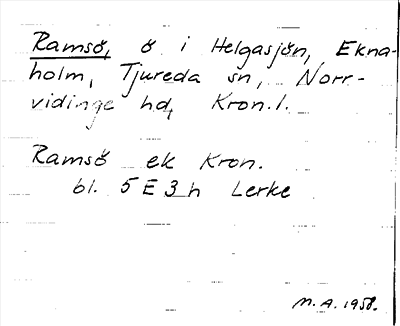 Ramsö, ö i Helgasjön, Ekna-
holm, Tjureda sn, Norr-
vidinge hd, Kron. l.
Ramsö ek Kron.
bl. 5 E 3 h Lerke
M.A. 1958.